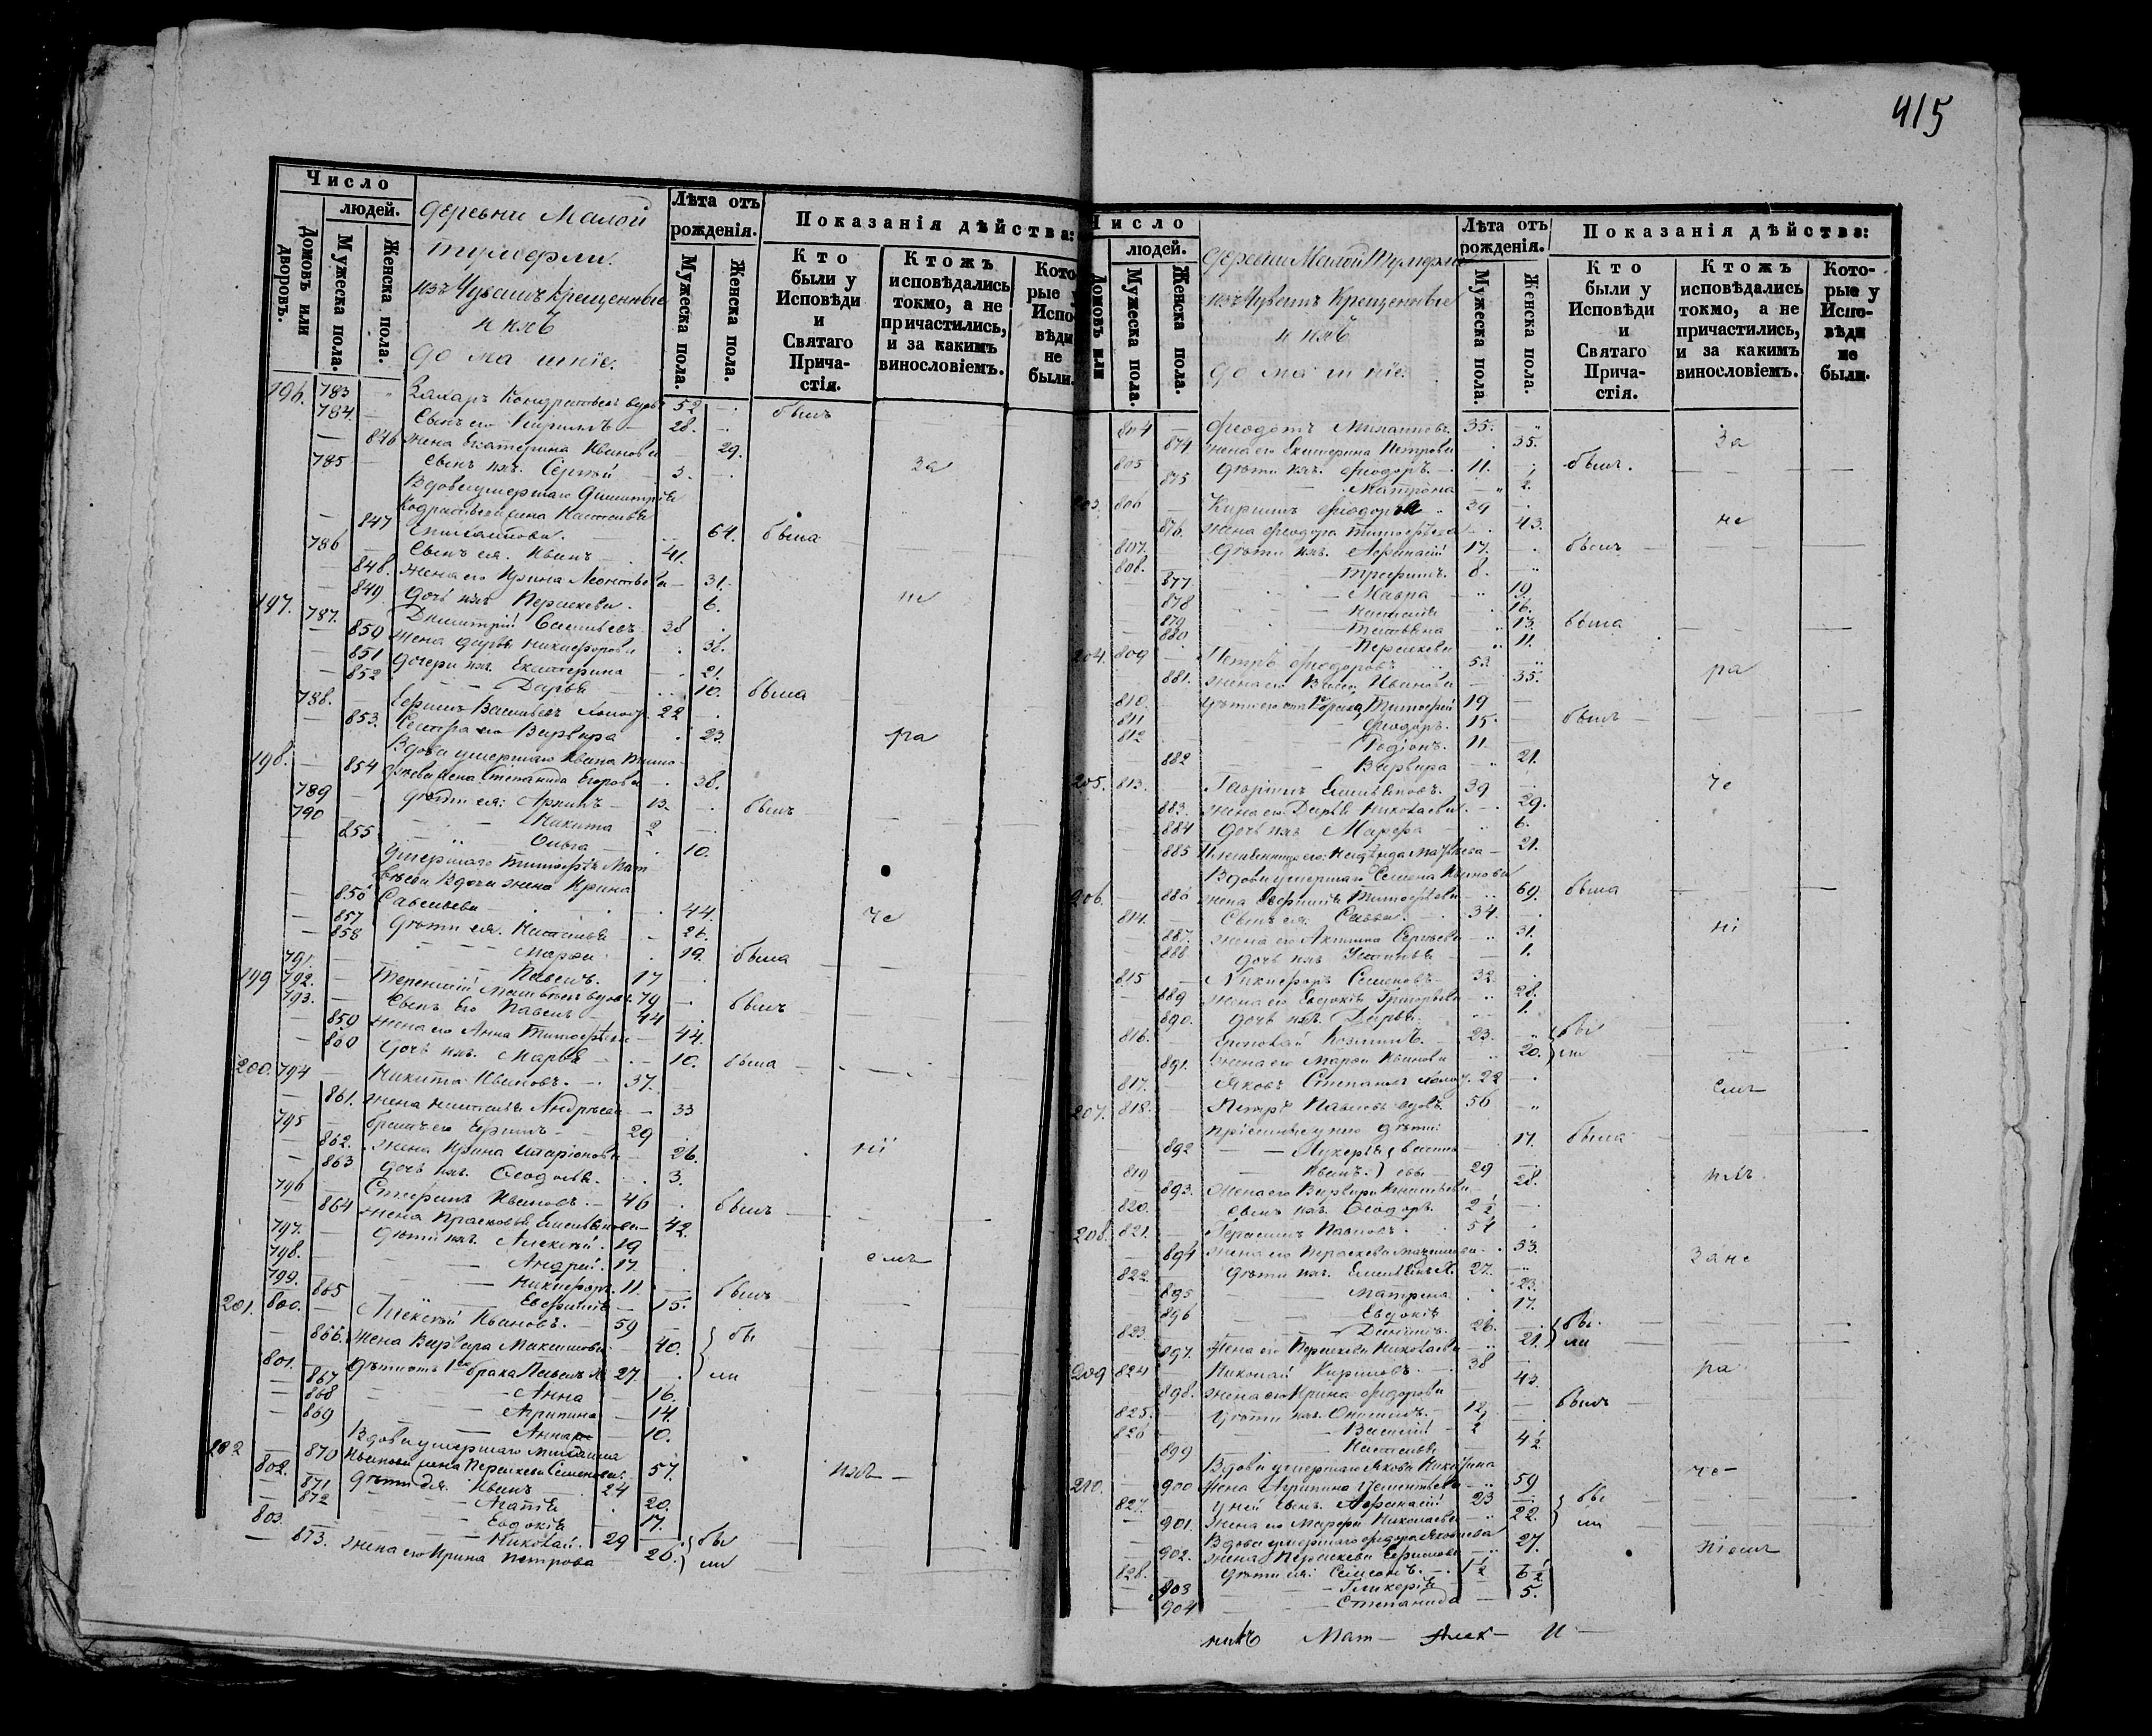 415
Число
людей.
Домовъ или дворовъ.
Мужеска пола.
Женска пола.
деревни Малой
из Чувашъ Крещенные
и ихъ
домашніе.
Лѣта отъ
рожденія.
Мужеска пола.
Женска пола.
Показанія дѣйства:
Кто были у Исповѣди и Святаго Причастія.
Ктожъ исповѣдались токмо, а не причастились, и за какимъ винословіемъ.
Которые у Исповѣди не были.
196. 783 Захаръ Кондратьевъ вдовъ 52 былъ
784. Сынъ его Кириллъ 28.
846 жена Екатерина Иванова 29.
785 сынъ ихъ Сергѣй 3. за
Вдова умершаго Димитрія
847 64. была
786 Сынъ ея Иванъ 41.
848. жена его Ирина Леонтьева 31.
849 дочь ихъ Параскева 6. не
197. 787. Димитрій Савельевъ 38
850 жена Дарья Никифорова 38.
851 дочери ихъ Екатерина 21.
852 Дарья 10. была
788. Ефимъ Васильевъ холост. 22
853. Сестра его Варвара 23. ра
198. Вдова умершаго Ивана Тимо
854 жена Степанида Егорова 38.
789 дѣти ея: Архипъ 13. былъ
790 Никита 2
855 Ольга 10.
умершаго Тимофѣя Мат
вѣева Вдова жена Ирина
856 Савельева 44. че
857 дѣти ея. Наталья 26.
858 Марѳа 19. была
791. Павелъ 17
199 792. Терентій вдовъ 79 былъ
793. Сынъ Его Павелъ 44
859 жена его Анна Тимофѣева 44.
860 дочь ихъ Марья 10. была
200. 794 Никита Ивановъ. 37.
861. жена Наталья Андрѣева 33
795 братъ его Ефимъ 29
862. жена Ирина Иларіонова 26. ніи
863 дочь ихъ. Ѳеодосья 3.
796 Стефанъ Ивановъ 46 былъ
864 жена Прасковья Емельянова 42.
797. дѣти ихъ Алексѣй 19
798. Андрей. 17. емъ
799. Никифоръ 11. былъ
865 Евфимія 15.
201. 800. Алексѣй Ивановъ. 59 бы
866. жена Варвара Максимова 40. ли
801. дѣти отъ 1го брака Павелъ 27
867 Анна 16.
868 Агрипина 14.
869 Анна 10.
202 Вдова умершаго Михаила
870 Иванова жена Параскева Семенова 57. ихъ
802. дѣти ея. Иванъ 24
871 Агапія 20.
872 Евдокія 17.
803. Николай. 29 бы
873. жена его Ирина Петрова 26. ли
Число
людей.
Домовъ или
Мужеска пола.
Женска пола.
деревни Малой
изъ Чувашъ Крещенные
и ихъ
домашніе.
Лѣта отъ
рожденія.
Мужеска пола.
Женска пола.
Показанія дѣйства:
Кто были у Исповѣди и Святаго Причастія.
Ктожъ исповѣдались токмо, а не причастились, и за какимъ винословіемъ.
Которые у Исповѣди не были.
804 Ѳеодотъ 35. за
874 жена его Екатерина Петрова 35.
805 дѣти ихъ Ѳеодоръ. 11. былъ.
875 Матрона 2.
203. 806 Кирилъ Ѳеодоровъ 29 не
876. жена Ѳеодора Тимофѣева 43.
807. дѣти ихъ. Аѳанасій 17. былъ
808. Трофимъ. 8.
877 Мавра 19.
878 Наталья 16.
879 Татьяна 13. была
880 Параскева 11.
204. 809 Петръ Ѳеодоровъ 53 ра
881. жена его Васса Иванова 35.
810. дѣти его отъ 1го брака Тимофей 19
811 Ѳеодоръ. 15. былъ
812 Родіонъ. 11.
882 Варвара 21.
205. 813. Гавріилъ Емельяновъ. 39 че
883. жена его Дарья Николаева 29.
884 дочь ихъ Марѳа 6.
885 21.
Вдова умершаго Семена Иванова
206. 886 жена Евфимія Тимофѣева 69. была
814. Сынъ ея: Савва. 34. ні
887. жена его Акилина Сергѣева 31.
888 дочь ихъ Устинья 1.
815 Никифоръ Семеновъ 32.
889 жена его Евдокія Григорьева 28.
890. дочь ихъ. Дарья. 1.
816. Козминъ. 23. бы
891. жена его Марѳа Иванова 20. ли
817. Яковъ Степановъ холост. 22 емъ
207. 818. Петръ Павловъ вдовъ 56
892 Лукерья 17. была
819 Иванъ. 29 ихъ
893. жена его Варвара 28.
820. сынъ ихъ Ѳеодоръ 2½
208. 821. Герасимъ Павловъ. 54
894 жена его Параскева 53. за не
822. дѣти ихъ 27.
895 Матрена 23.
896 Евдокія 17.
823. Даніилъ. 26. бы
897. жена его Параскева Николаева 21. ли
209 824 Николай Кириловъ 38 ра
898. жена его Ирина Ѳедорова 43.
825. дѣти ихъ. 12, былъ
826 Василій 2
899 Наталья 4½
Вдова умершаго Якова Никитина че
210. 900 жена Агрипина 59
827. у ней сынъ. Аѳанасій 23 бы
901. жена его Марѳа Николаева 22. ли
Вдова умершаго Ѳедора Яковлева
902. жена Параскева Ефимова 27. ніемъ
828. дѣти ея: 1½
903 Гликерія 6½
904 Степанида 5.